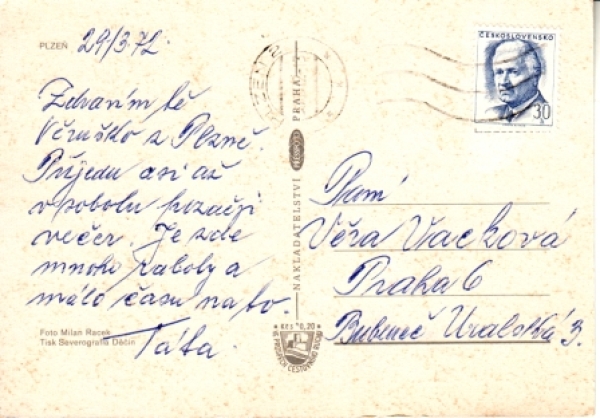 PLZEŇ
29/3.72.
Zdravím tě
Věruško z Plzně.
Přijedu asi až
v sobotu později
večer. Je zde
mnoho roboty a
málo času na to.
Táta.
Foto Milan Racek
Tisk Severografia Děčín
NAKLADATELSTVÍ PRESSFOTO PRAHA
Kčs 0,20
ČESKOSLOVENSKO
30
Věra Vacková
Praha 6
Bubeneč Uralská 3.